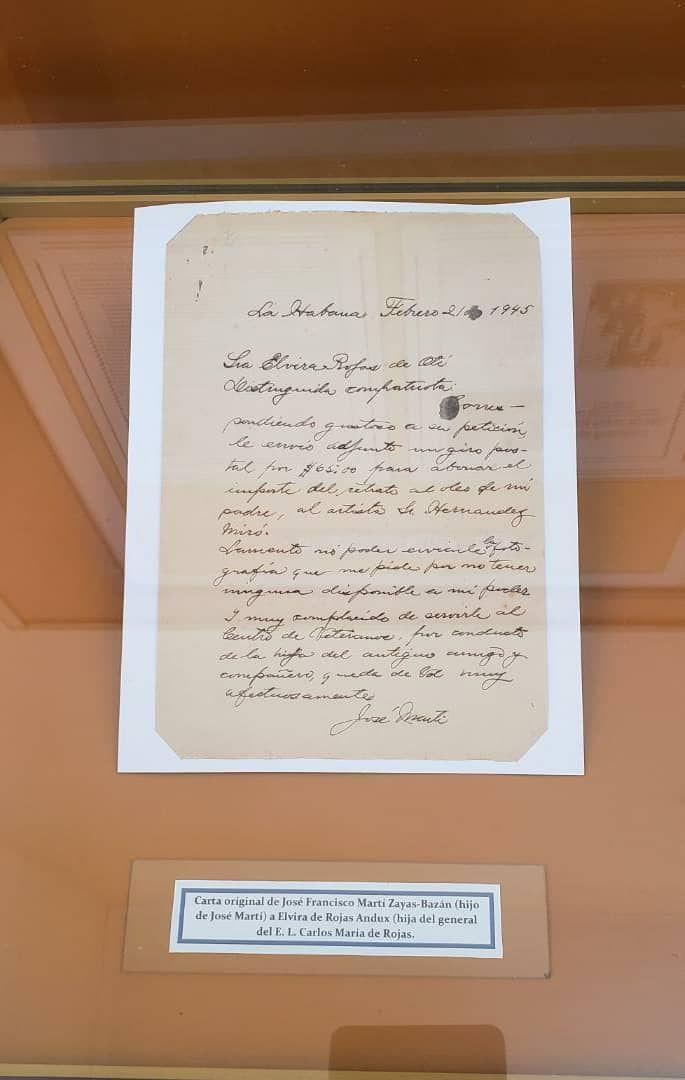 La Habana Febrero 21 1945
Sra Elvira Rojas de Oti
Distinguida compatriota:
Corres-
pondiendo gustoso a su petición,
le envio adjunto un giro pos-
tal por $65.00 para abonar el
importe del retrato al oleo de mi
padre, al artista Sr. Hernandez
Miró.
Lamento no poder enviarle la foto-
grafía que me pide por no tener
ninguna disponible a mi poder
Y muy complacido de servirle al
Centro de Veteranos, por conducto
de la hija del antiguo amigo y
compañero, queda de Vd muy
afectuosamente
José Martí
Carta original de José Francisco Martí Zayas-Bazán (hijo
de José Martí) a Elvira de Rojas Andux (hija del general
del E. L. Carlos María de Rojas.